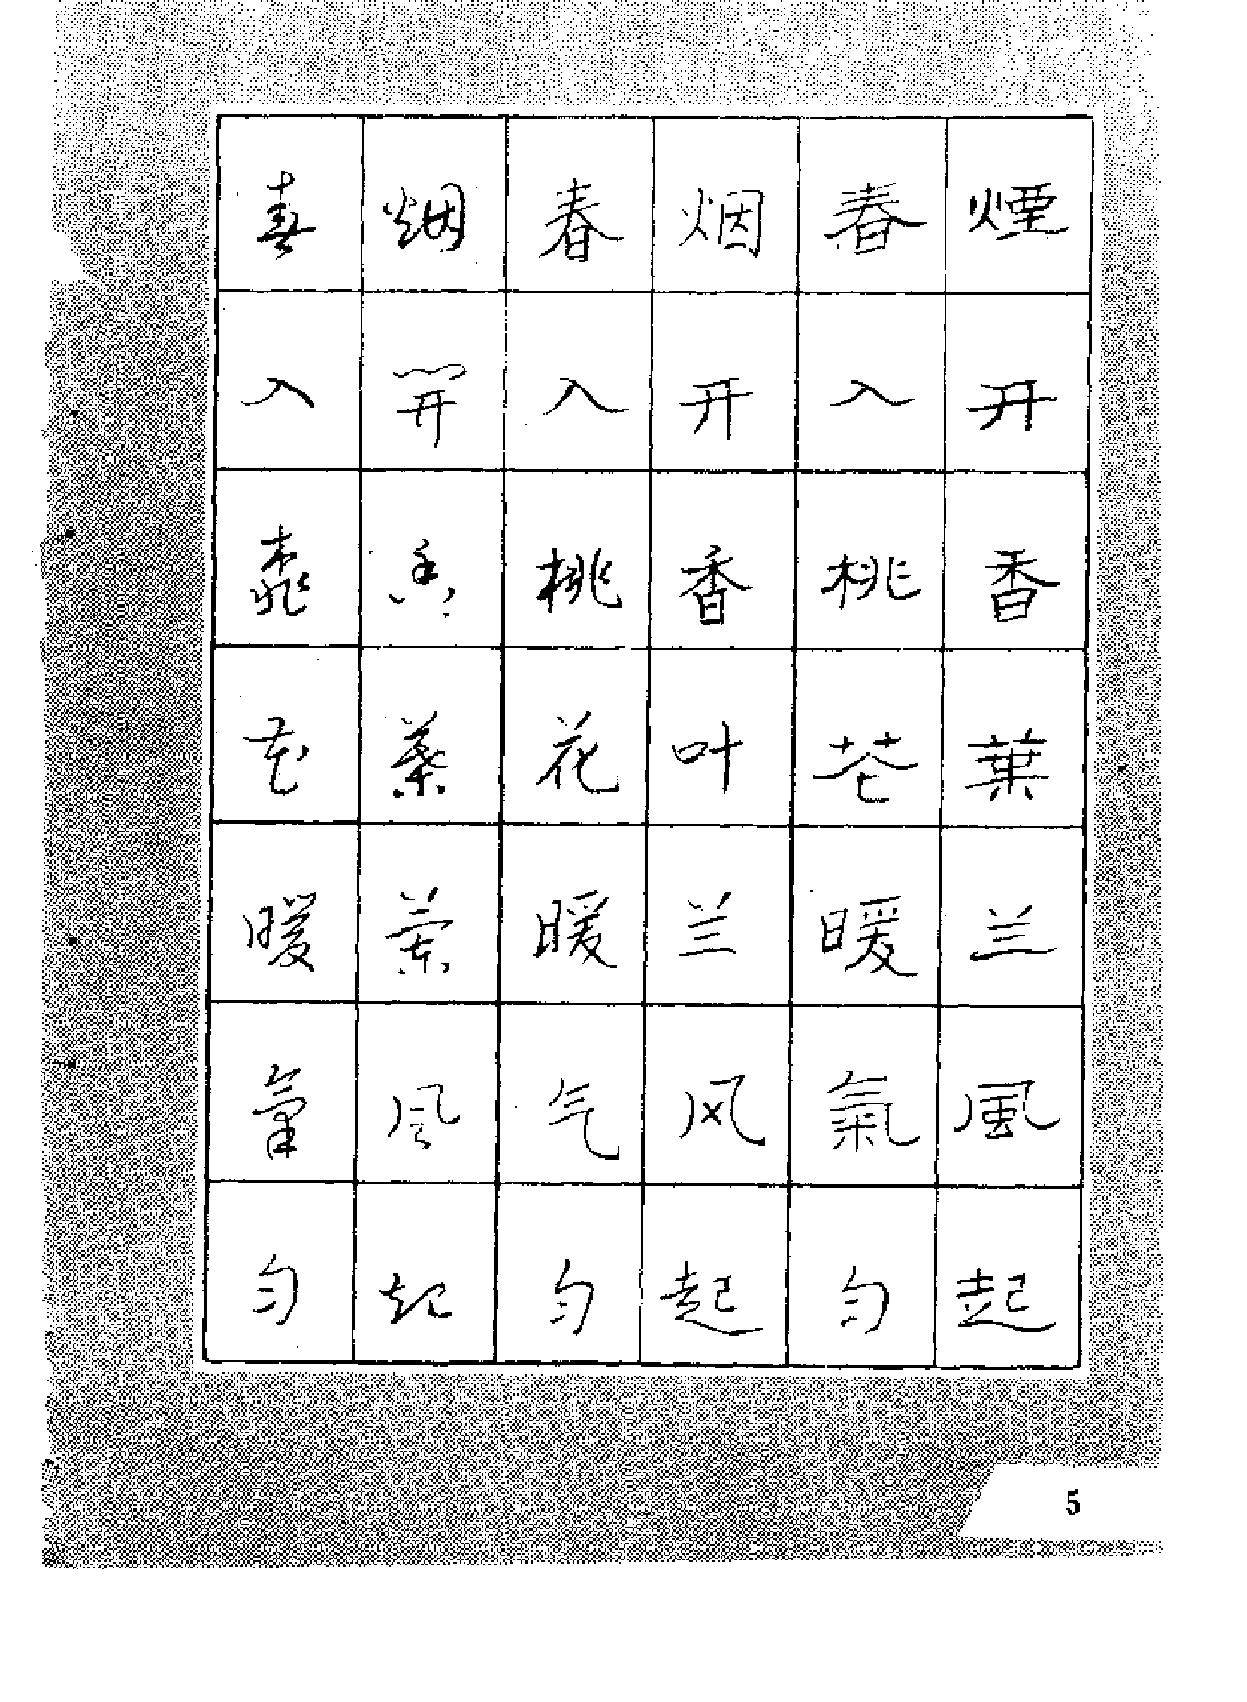 煙开香葉兰風起
春入桃花暖氣匀
烟开香叶兰风起
春入桃花暖气匀
烟開香葉蘭風起
春入桃花暖氣匀
5